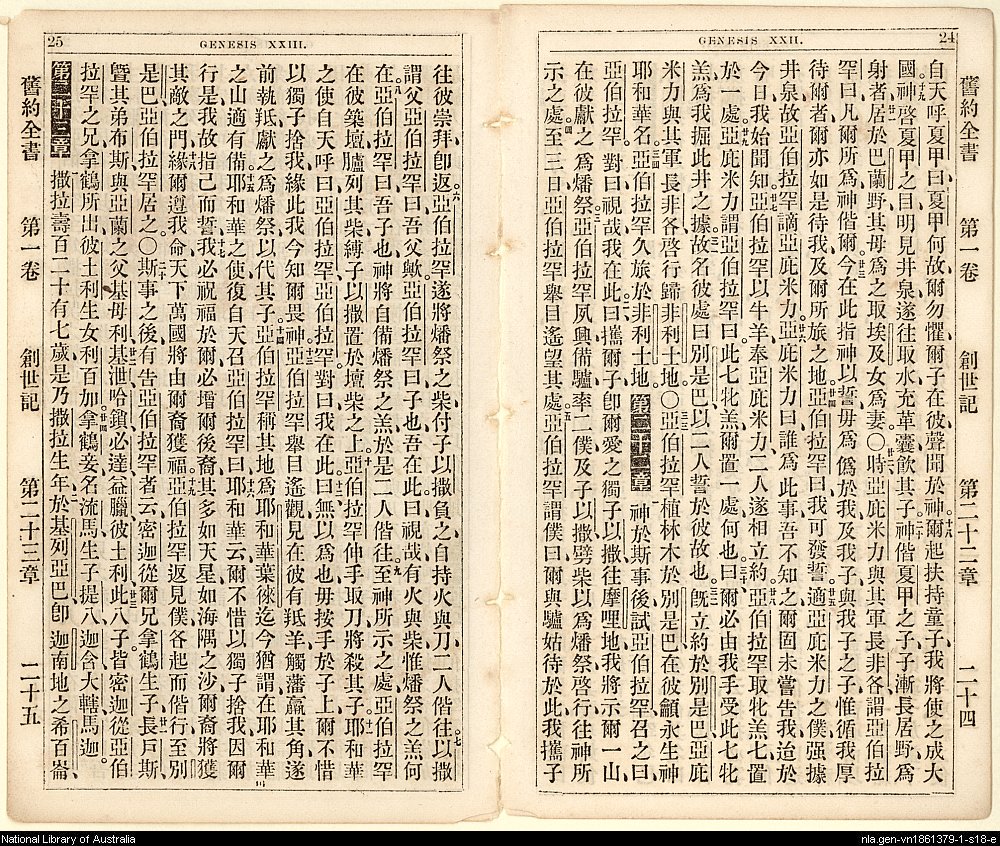 24
GENESIS XXII.
舊約全書 第一卷 創世記 第二十二章 二十四
自天呼夏甲曰夏甲何故爾勿懼爾子在彼聲聞於神爾起扶持童子我將使之成大
國神啓夏甲之目明見井泉遂往取水充革囊飮其子神偕夏甲之子子漸長居野爲
射者居於巴蘭野其母爲之取埃及女爲妻〇時亞庇米力與其軍長非各謂亞伯拉
罕曰凡爾所爲神偕爾今在此指神以誓毋爲僞於我及我子與我子之子惟循我厚
待爾者爾亦如是待我及爾所旅之地亞伯拉罕曰我可發誓適亞庇米力之僕强據
井泉故亞伯拉罕謫亞庇米力亞庇米力曰誰爲此事吾不知之爾固未嘗告我迨於
今日我始聞知亞伯拉罕以牛羊奉亞庇米力二人遂相立約亞伯拉罕取牝羔七置
於一處亞庇米力謂亞伯拉罕曰此七牝羔爾置一處何也曰爾必由我手受此七牝
羔爲我掘此井之據故名彼處曰別是巴以二人誓於彼故也旣立約於別是巴亞庇
米力與其軍長非各啓行歸非利士地〇亞伯拉罕植林木於別是巴在彼籲永生神
耶和華名亞伯拉罕久旅於非利士地第二十二章神於斯事後試亞伯拉罕召之曰
亞伯拉罕對曰視哉我在此曰攜爾子卽爾愛之獨子以撒往摩哩地我將示爾一山
在彼獻之爲燔祭亞伯拉罕夙興備驢率二僕及子以撒劈柴以爲燔祭啓行往神所
示之處至三日亞伯拉罕舉目遙望其處亞伯拉罕謂僕曰爾與驢姑待於此我攜子
25
GENESIS XXIII.
往彼崇拜卽返亞伯拉罕遂將燔祭之柴付子以撒負之自持火與刀二人偕往以撒
謂父亞伯拉罕曰吾父歟亞伯拉罕曰子也吾在此曰視哉有火與柴惟燔祭之羔何
在亞伯拉罕曰吾子也神將自備燔祭之羔於是二人偕往至神所示之處亞伯拉罕
在彼築壇臚列其柴縛子以撒置於壇柴之上亞伯拉罕伸手取刀將殺其子耶和華
之使自天呼曰亞伯拉罕亞伯拉罕對曰我在此曰無以爲也毋按手於子上爾不惜
以獨子捨我緣此我今知爾畏神亞伯拉罕舉目遙觀見在彼有羝羊觸藩羸其角遂
前執羝獻之爲燔祭以代其子亞伯拉罕稱其地爲耶和華葉徠迄今猶謂在耶和華
之山適有備耶和華之使復自天召亞伯拉罕曰耶和華云爾不惜以獨子捨我因爾
行是我故指己而誓我必祝福於爾必增爾後裔其多如天星如海隅之沙爾裔將獲
其敵之門緣爾遵我命天下萬國將由爾裔獲福亞伯拉罕返見僕各起而偕行至別
是巴亞伯拉罕居之〇斯事之後有告亞伯拉罕者云密迦從爾兄拿鶴生子長戶斯
曁其弟布斯與亞蘭之父基母利基泄哈鎖必達益臘彼土利此八子皆密迦從亞伯
拉罕之兄拿鶴所出彼土利生女利百加拿鶴妾名流馬生子提八迦含大轄馬迦
第二十三章撒拉壽百二十有七歲是乃撒拉生年於基列亞巴卽迦南地之希百崙
舊約全書 第一卷 創世記 第二十三章 二十五
National Library of Australia
nla.gen-vn1861379-1-s18-e